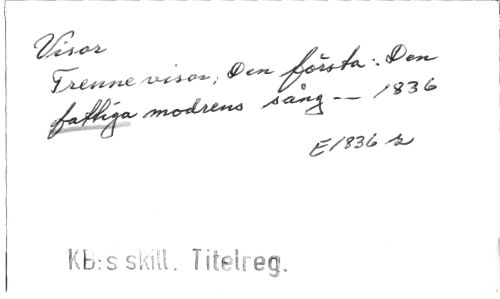 Visor
Trenne visor, Den första: Den
fattiga modrens sång — 1836
E1836 s
KB:s skill. Titelreg.